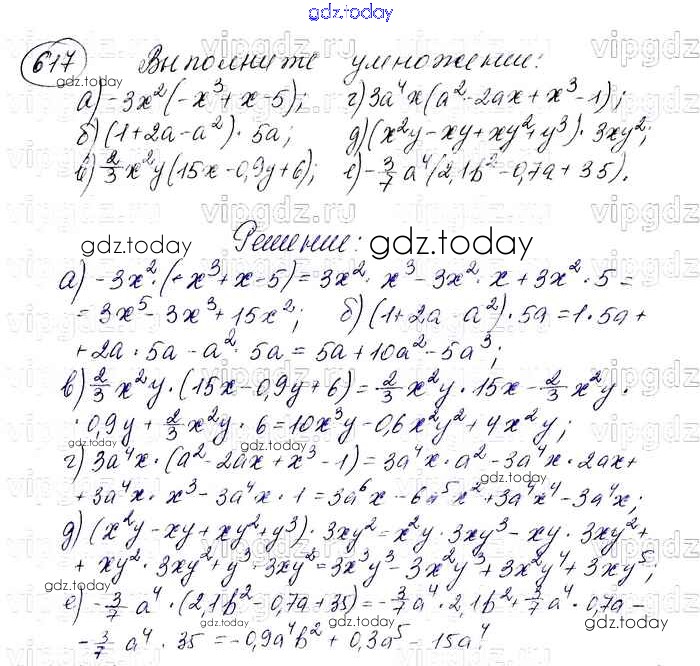 gdz.today
617 Выполните умножение:
а) -3x²(-x³+x-5); г) 3a⁴x(a²-2ax+x³-1);
б) (1+2a-a²)·5a; д) (x²y-xy+xy²+y³)·3xy²;
в) 2/3x²y(15x-0,9y+6); е) -3/7a⁴(2,1b²-0,7a+35).
Решение:
а) -3x²·(-x³+x-5)=3x²·x³-3x²·x+3x²·5=
=3x⁵-3x³+15x²; б) (1+2a-a²)·5a=1·5a+
+2a·5a-a²·5a=5a+10a²-5a³;
в) 2/3x²y·(15x-0,9y+6)=2/3x²y·15x-2/3x²y·
·0,9y+2/3x²y·6=10x³y-0,6x²y²+4x²y;
г) 3a⁴x·(a²-2ax+x³-1)=3a⁴x·a²-3a⁴x·2ax+
+3a⁴x·x³-3a⁴x·1=3a⁶x-6a⁵x²+3a⁴x⁴-3a⁴x;
д) (x²y-xy+xy²+y³)·3xy²=x²y·3xy²-xy·3xy²+
+xy²·3xy²+y³·3xy²=3x³y³-3x²y³+3x²y⁴+3xy⁵;
е) -3/7a⁴·(2,1b²-0,7a+35)=-3/7a⁴·2,1b²+3/7a⁴·0,7a-
-3/7a⁴·35=-0,9a⁴b²+0,3a⁵-15a⁴.
gdz.today